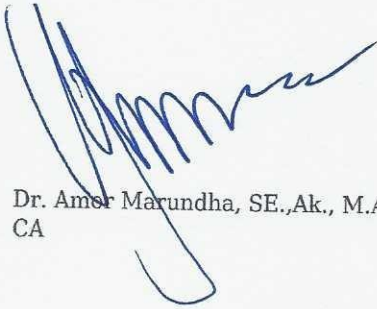 Dr. Amor Marundha, SE.,Ak., M.A
CA